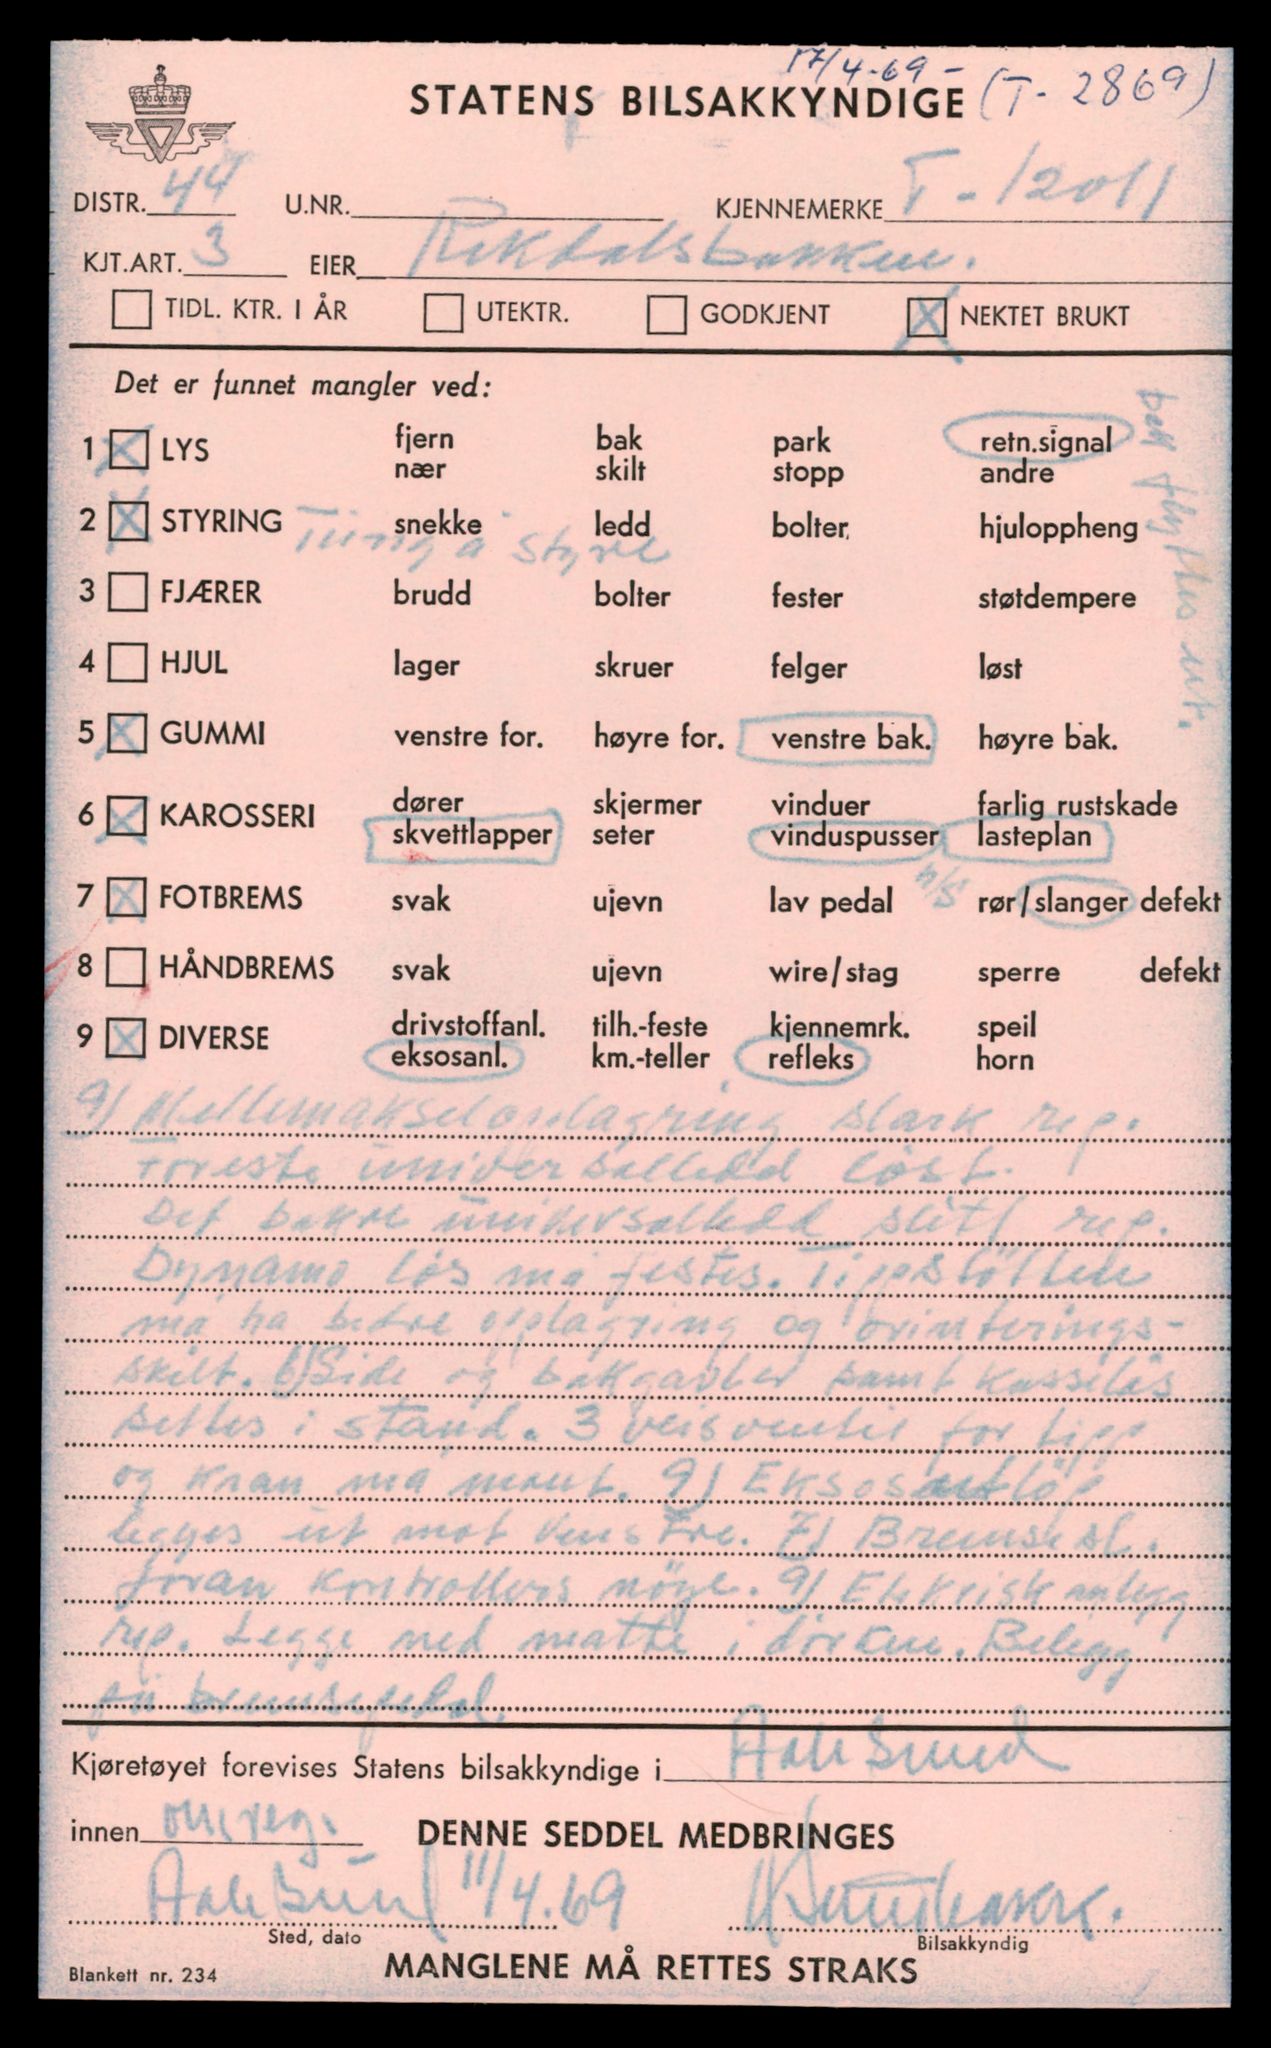 17/4-69-
STATENS BILSAKKYNDIGE (T-2869)
DISTR. 44 U.NR. KJENNEMERKE T-12011
KJT.ART. 3 EIER Rekdalsbakken.
TIDL. KTR. I ÅR UTEKTR. GODKJENT X NEKTET BRUKT
Det er funnet mangler ved:
bak flyttes ut.
1 X LYS fjern bak park retn.signal
nær skilt stopp andre
2 X STYRING snekke ledd bolter hjuloppheng
Tung å styre
3 FJÆRER brudd bolter fester støtdempere
4 HJUL lager skruer felger løst
5 X GUMMI venstre for. høyre for. venstre bak. høyre bak.
6 X KAROSSERI dører skjermer vinduer farlig rustskade
skvettlapper seter vinduspusser lasteplan
7 X FOTBREMS svak ujevn lav pedal rør/slanger defekt
8 HÅNDBREMS svak ujevn wire/stag sperre defekt
9 X DIVERSE drivstoffanl. tilh.-feste kjennemrk. speil
eksosanl. km.-teller refleks horn
9) Mellemakselopplagring slark rep.
Foreste universalledd løst.
Det bakre universalledd slitt rep.
Dynamo løs må festes. Tippstötten
må ha bedre opplagring og orinterings-
skilt. 6) Side og bakgavler samt kasselås
settes i stand. 3 veisventil for tipp
og kran må mont. 9) Eksosutløp
legges ut mot venstre. 7) Bremsesl.
foran kontrollers nöye. 9) Elektrisk anlegg
rep. Legge ned matte i dørken. Belegg
på bremsepedal.
Kjøretøyet forevises Statens bilsakkyndige i Aalesund
innen omreg. DENNE SEDDEL MEDBRINGES
Aalesund 11/4.69
Sted, dato Bilsakkyndig
Blankett nr. 234 MANGLENE MÅ RETTES STRAKS